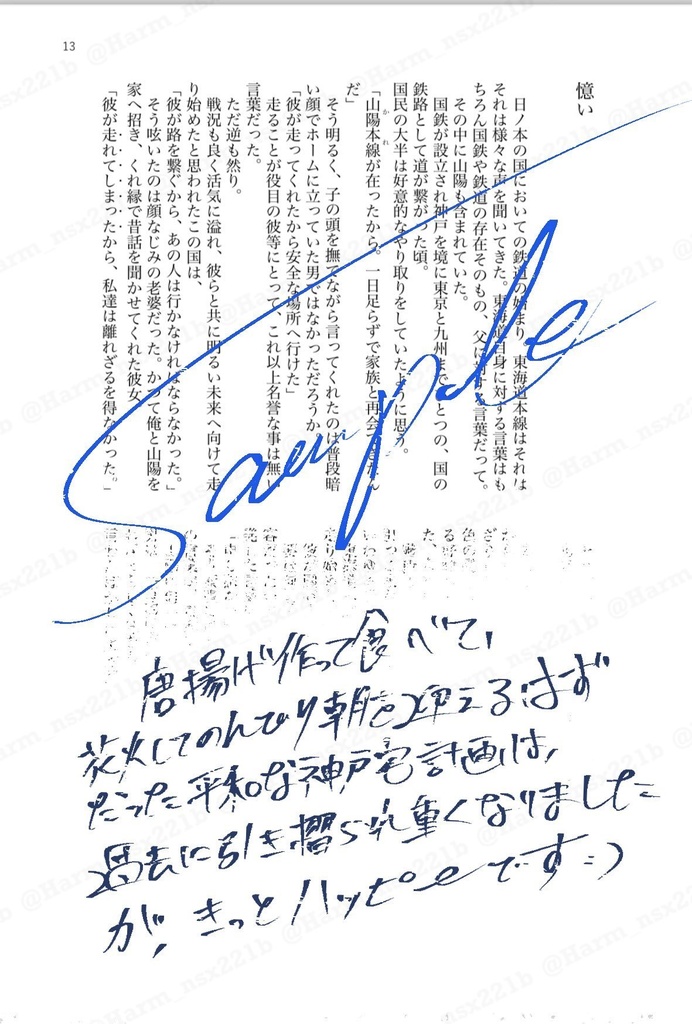 13
憶い
日ノ本の国においての鉄道の始まり、東海道本線はそれは
それは様々な声を聞いてきた。東海道自身に対する言葉はも
ちろん国鉄や鉄道の存在そのもの、父に対す 言葉だって。
その中に山陽も含まれていた。
国鉄が設立され神戸を境に東京と九州まで とつの、国の
鉄路として道が繋がった頃。
国民の大半は好意的なやり取りをしていたように思う。
「山陽本線が在ったから。一日足らずで家族と再会 きたん
かれ
だ」
そう明るく、子の頭を撫でながら言ってくれたのは普段暗
い顔でホームに立っていた男ではなかっただろうか。
「彼が走ってくれたから安全な場所へ行けた」
走ることが役目の彼等にとって、これ以上名誉な事は無い
言葉だった。
ただ逆も然り。
戦況も良く活気に溢れ、彼らと共に明るい未来へ向けて走
り始めたと思われたこの国は、
「彼が路を繋ぐから、あの人は行かなければならなかった。」
そう呟いたのは顔なじみの老婆だった。かつて俺と山陽を
家へ招き、くれ縁で昔話を聞かせてくれた彼女。
「彼が走れてしまったから、私達は離れざるを得なかった。」
Sample
唐揚げ作って食べて、
花火してのんびり朝を迎えるはず
だった平和な神戸宅計画は、
過去に引き摺られ重くなりました
が、きっとハッピeです=)
@Harm_nsx221b